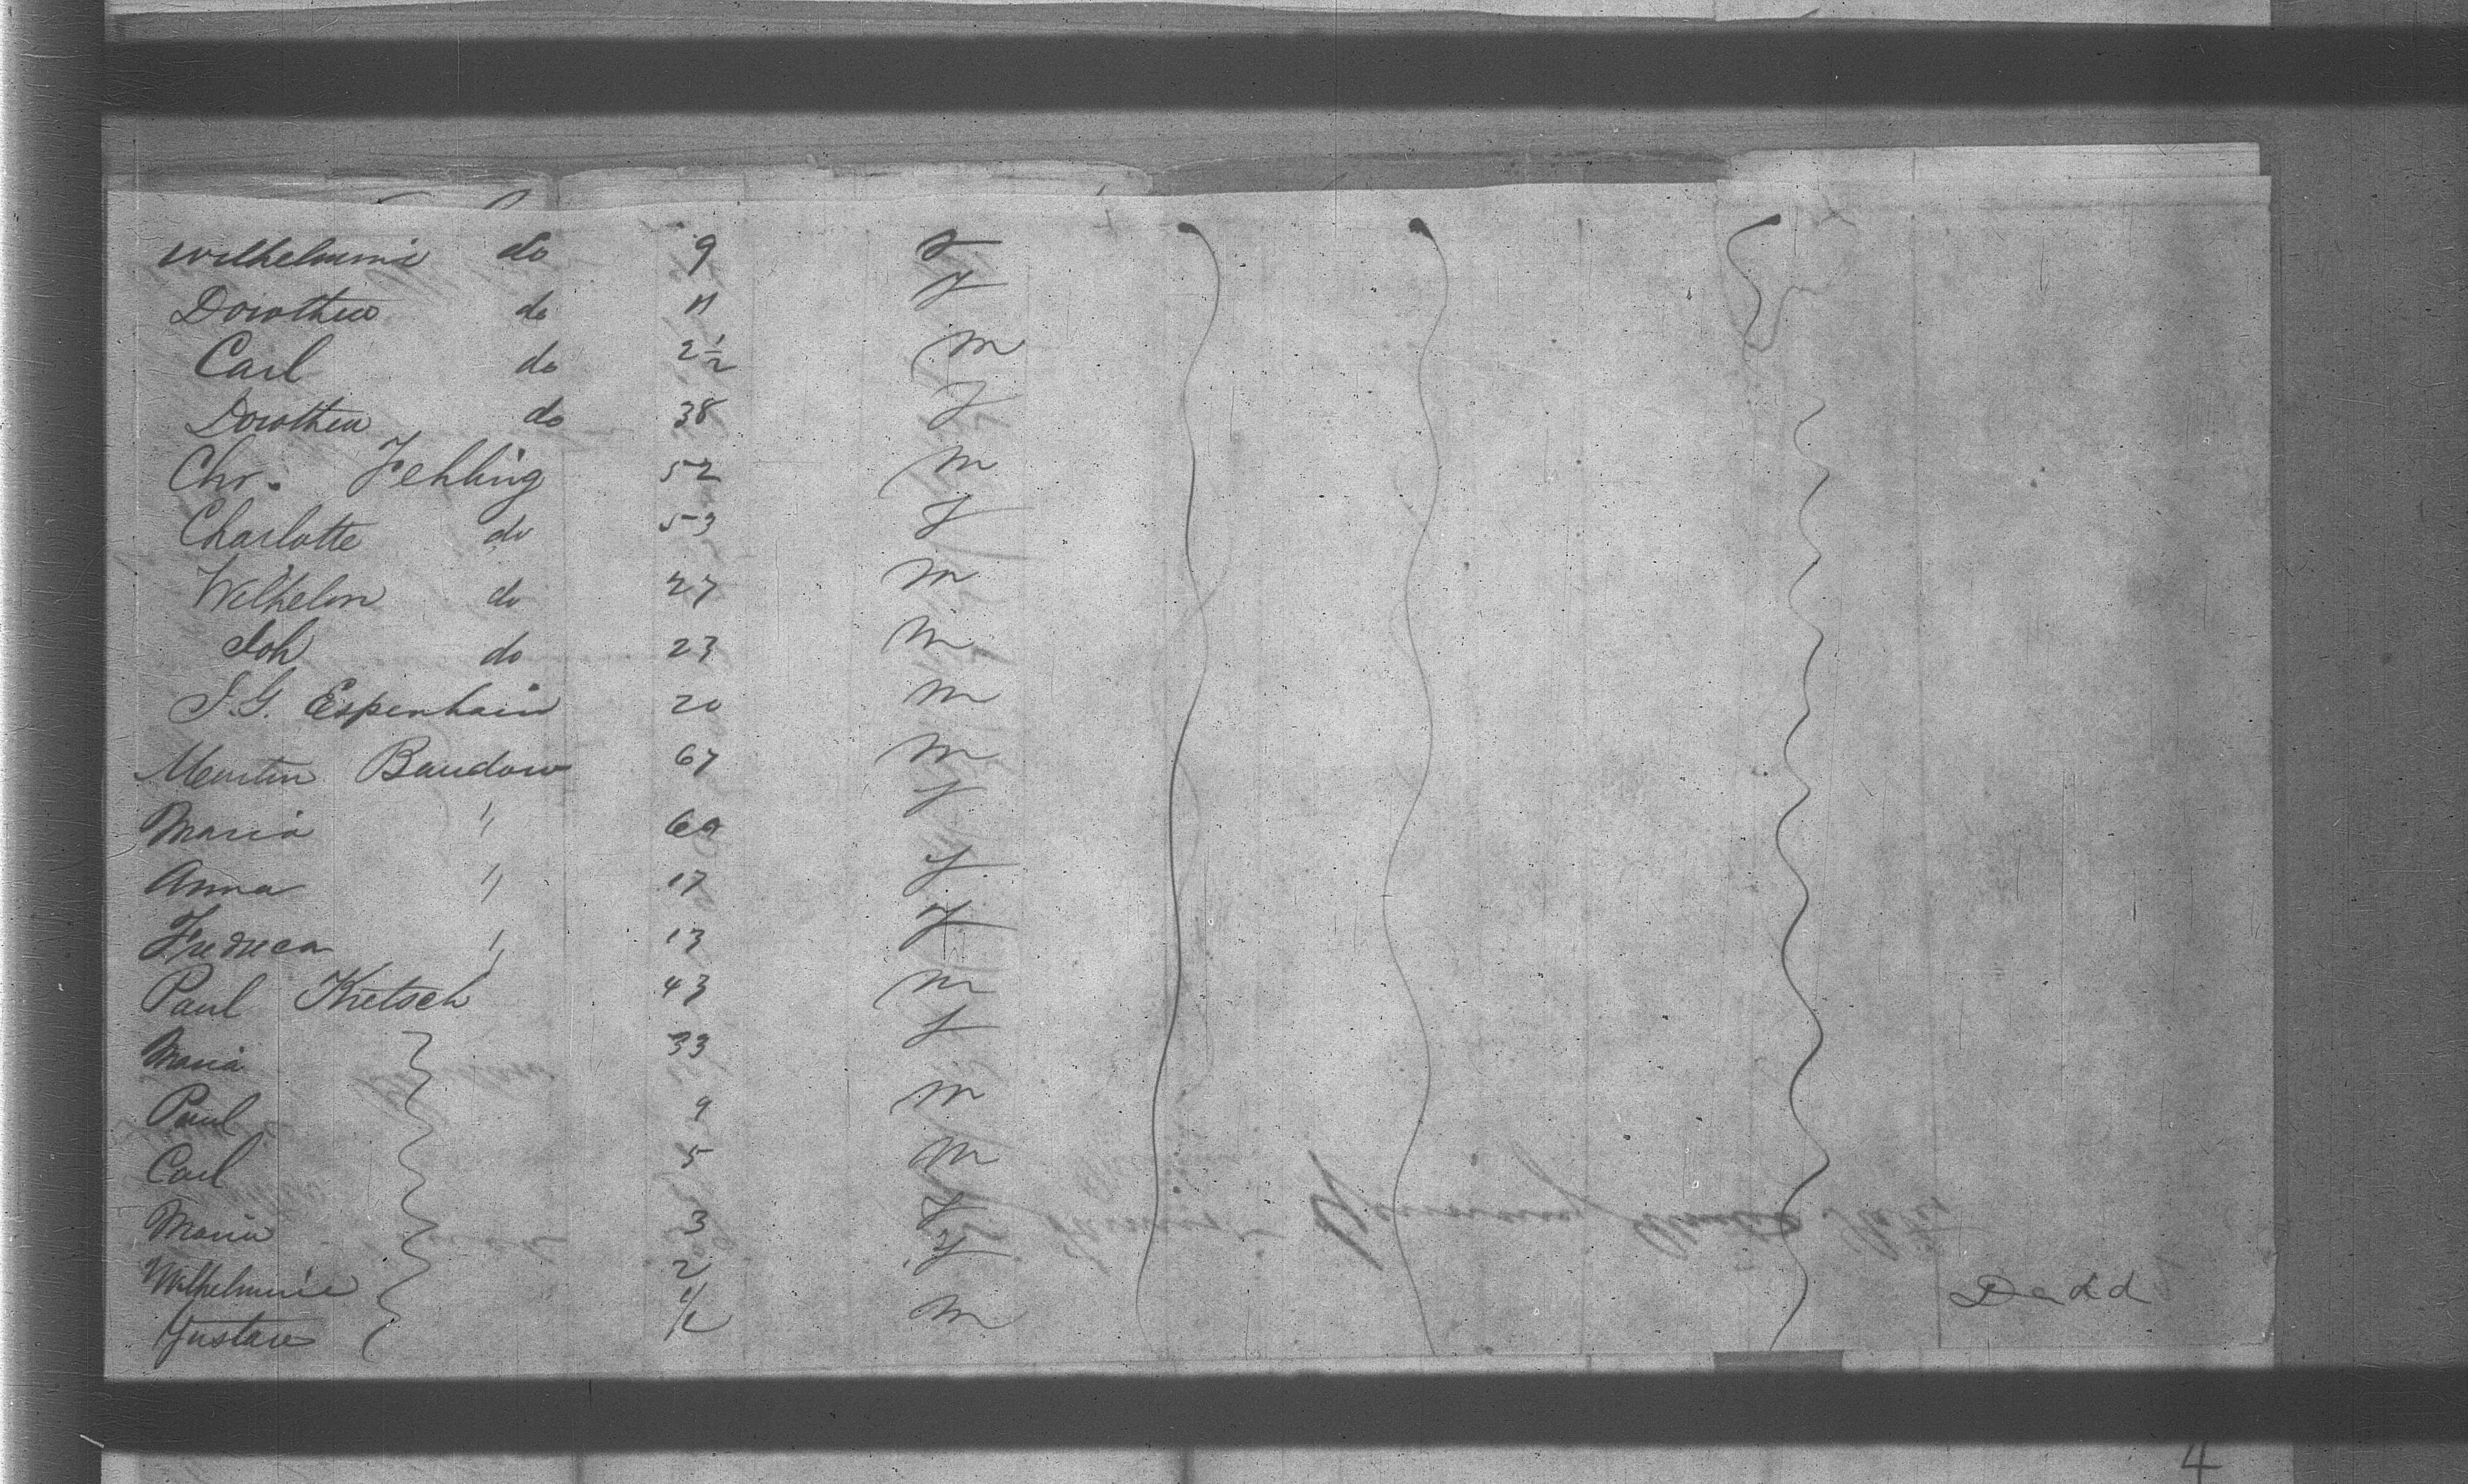 Wilhelmine do 9 f
Dorothea do 11 f
Carl do 2 1/2 m
Dorothea do 38 f
Chr. Fehling 52 m
Charlotte do 53 f
Wilhelm do 27 m
Joh do 23 m
J. G. Espenhain 20 m
Martin Baudow 67 m
Maria " f
Anna " 17 f
Fredrica " 13 f
Paul Kretsch 43 m
Maria 33 f
Paul 9 m
Carl 5 m
Maria 3 f
Wilhelmine 2 f
Gustave 1/2 m Dead
4